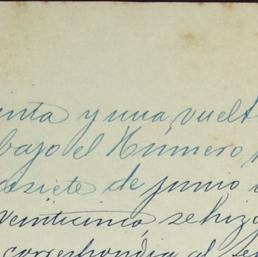 enta y una vuelt
bajo el Número
asiete de junio
veinticinco se hizo
correspondia al se